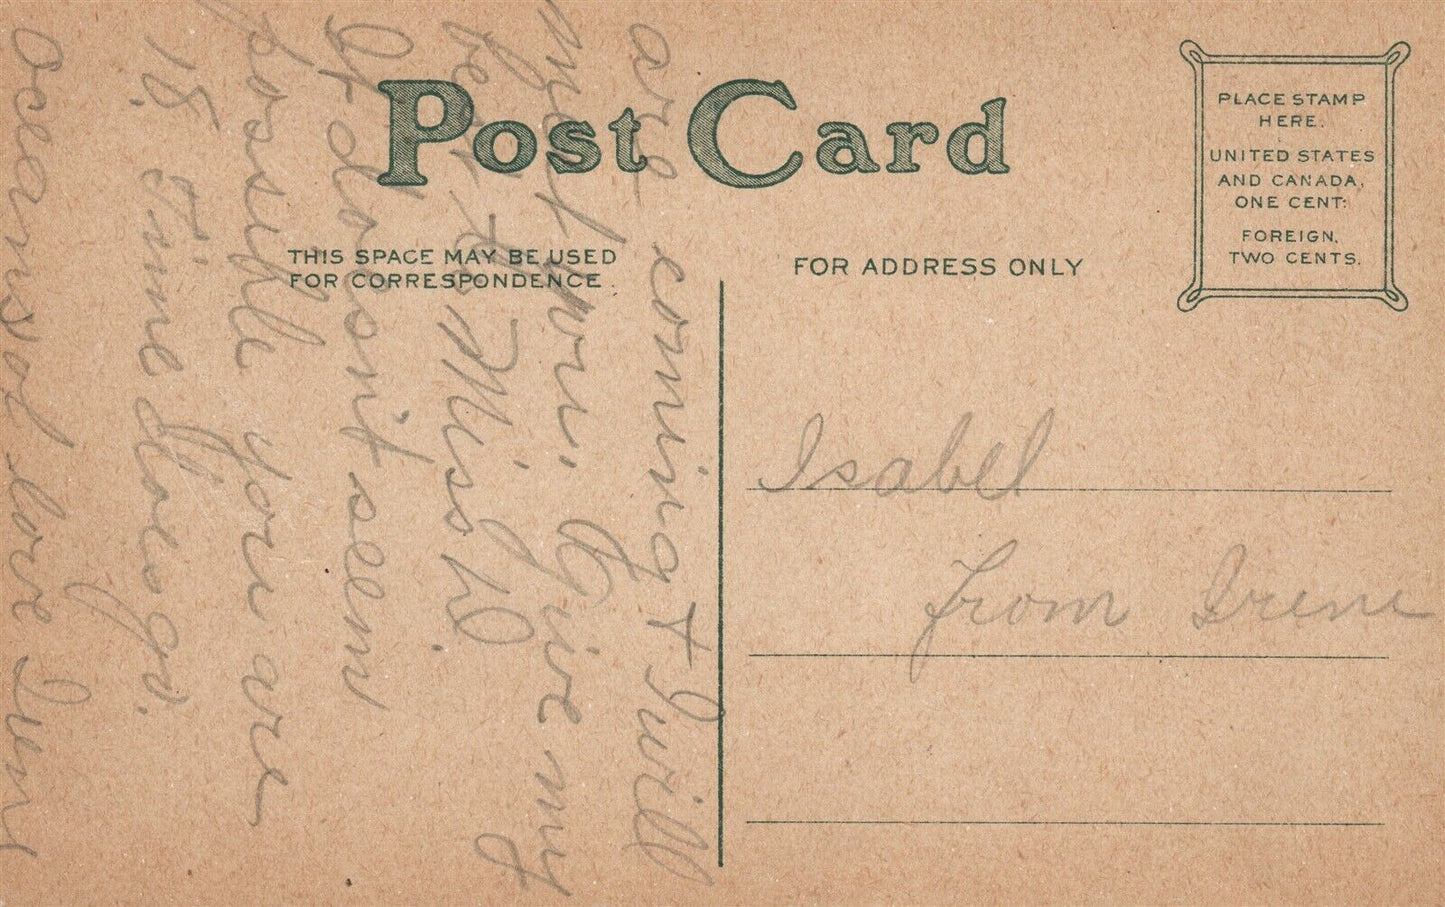 Post Card
THIS SPACE MAY BE USED
FOR CORRESPONDENCE.
FOR ADDRESS ONLY
PLACE STAMP
HERE.
UNITED STATES
AND CANADA,
ONE CENT:
FOREIGN,
TWO CENTS.
are coming & I will
meet you. Give my
best to Miss W.
It doesn't seem
possible you are
18. Time does go.
Oceans of love
Isabel
from Irene